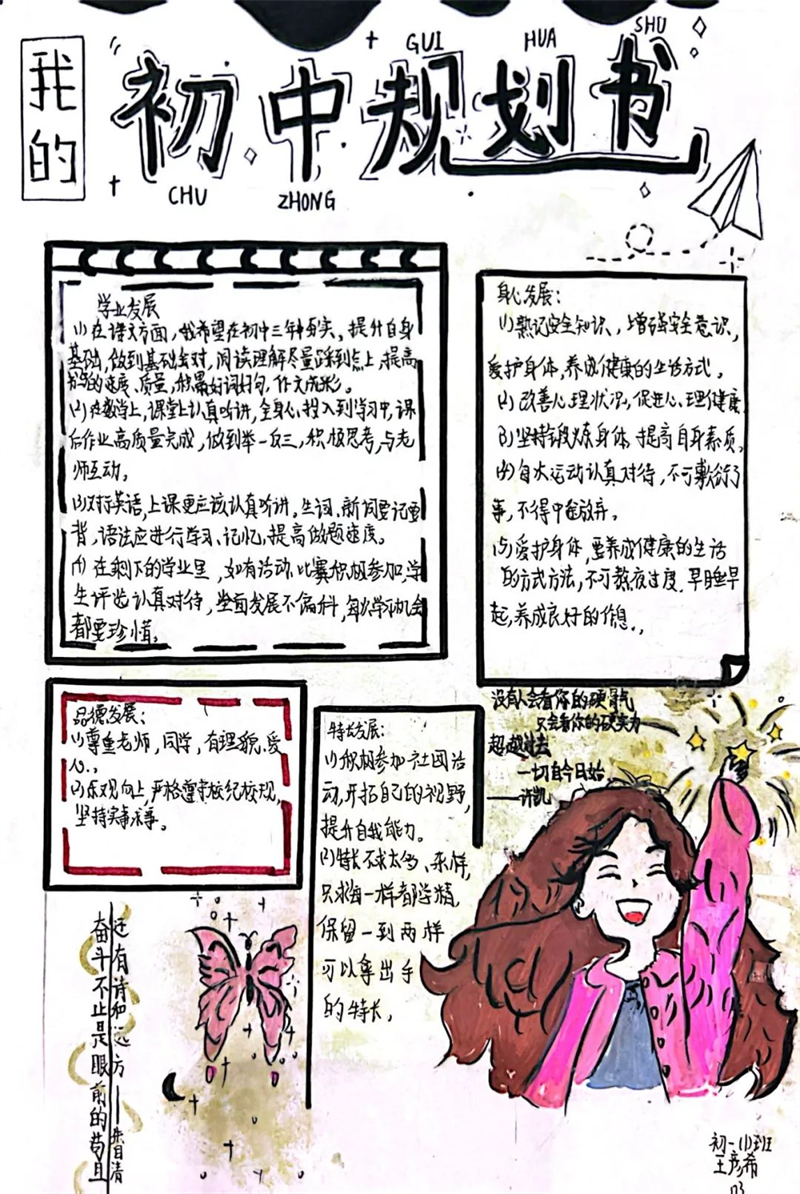 我的
初中规划书
GUI HUA SHU
CHU ZHONG
学业发展
(1)在语文方面,我希望在初中三年夯实、提升自身
基础,做到基础全对,阅读理解尽量踩到点上,提高
书写的速度、质量,积累好词好句,作文成形。
(2)在数学上,课堂上认真听讲,全身心投入到学习中,课
后作业高质量完成,做到举一反三,积极思考,与老
师互动。
(3)对于英语,上课更应该认真听讲。生词、新词要记要
背,语法应进行学习、记忆,提高做题速度。
(4)在剩下的学业里,如有活动、比赛积极参加,学
生评览认真对待,全面发展不偏科,每次学习机会
都要珍惜。
身心发展:
(1)熟记安全知识,增强安全意识,
爱护身体,养成健康的生活方式。
(2)改善心理状况,促进心理健康
(3)坚持锻炼身体,提高自身素质。
(4)自大运动认真对待,不可敷衍了
事,不得中途放弃。
(5)爱护身体,要养成健康的生活
的方式方法,不可熬夜过度,早睡早
起,养成良好的作息。
品德发展:
(1)尊重老师,同学,有理貌,爱
心。
(2)乐观向上,严格遵守校纪校规,
坚持实事求事。
特长发展:
(1)积极参加社团活
动,开拓自己的视野,
提升自我能力。
(2)特长不求太多、来样,
只求每一样都学精,
保留一到两样
可以拿出手
的特长。
没有人会看你的硬骨气
只会看你的硬实力
超越过去
一切自今日始
——许凯
奋斗不止是眼前的苟且
还有诗和远方——朱自清
初一(1)班
王彦希